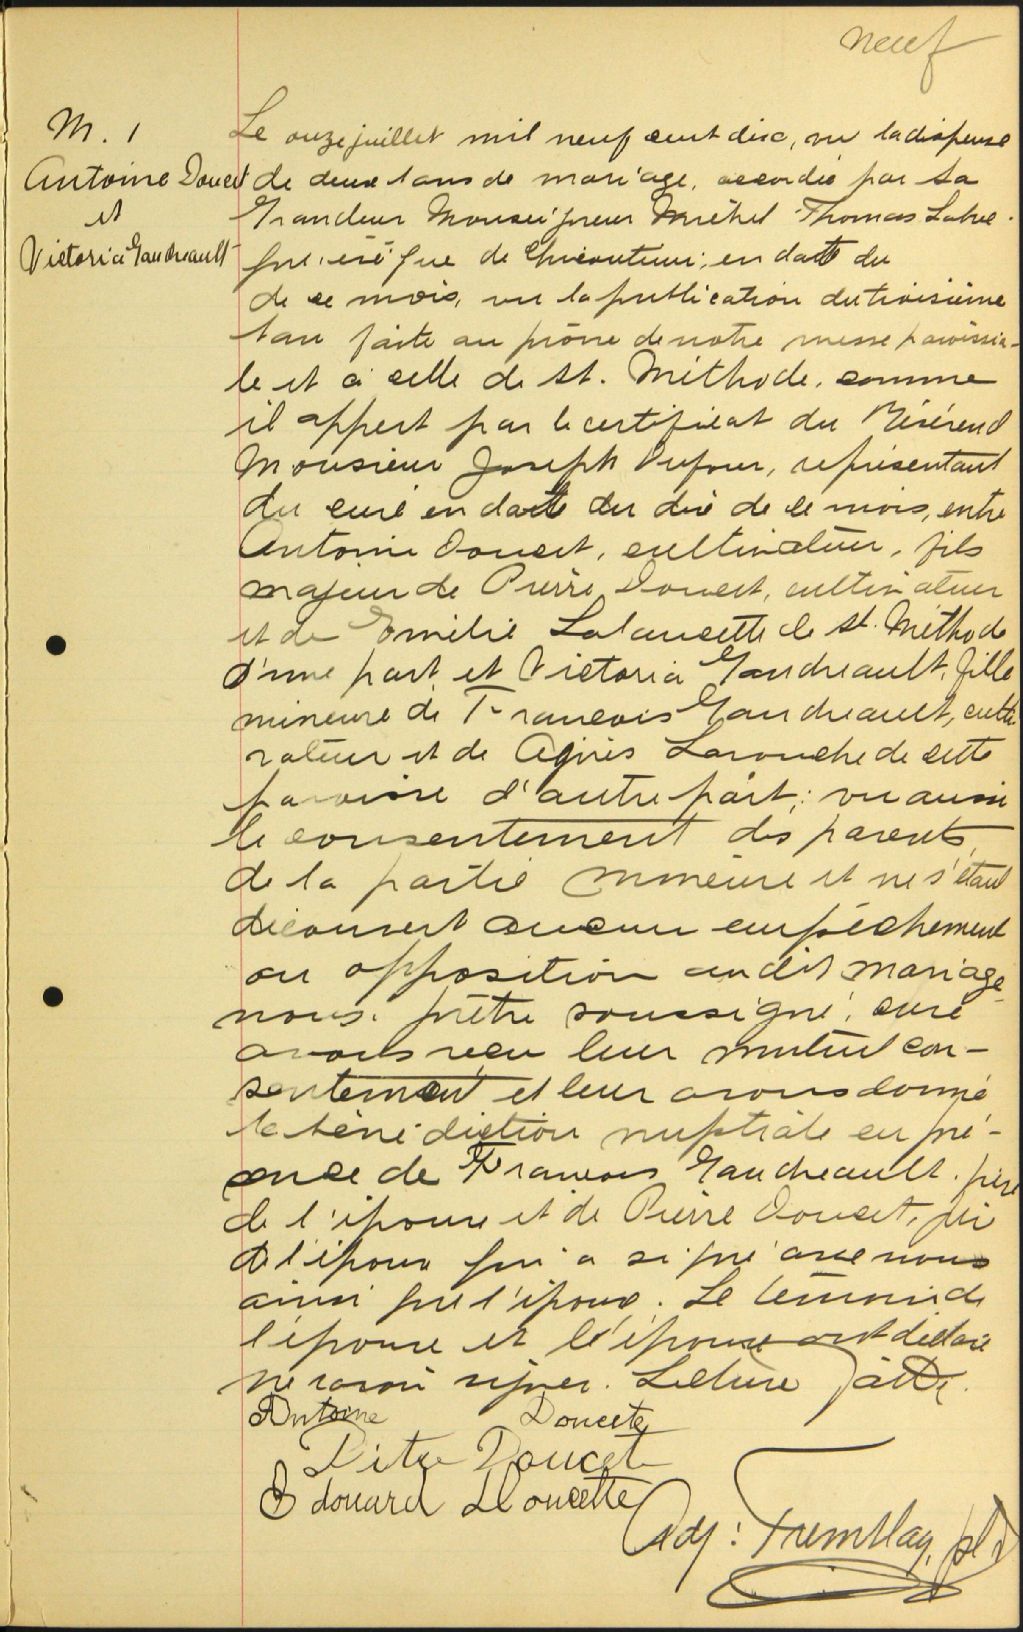 neuf
M. 1
Antoine Doucet
et
Victoria Gaudreault
Le onze juillet mil neuf cent dix, vu la dispense
de deux bans de mariage, accordée par Sa
Grandeur Monseigneur Michel Thomas Labre-
que, évêque de Chicoutimi, en date du
de ce mois, vu la publication du troisième
ban faite au prône de notre messe paroissia-
le et à celle de St. Méthode, comme
il appert par le certificat du Révérend
Monsieur Joseph Dufour, représentant
du curé en date du dix de ce mois, entre
Antoine Doucet, cultivateur, fils
majeur de Pierre Doucet, cultivateur
et de Emélie Lalancette de St. Méthode
d'une part, et Victoria Gaudreault, fille
mineure de François Gaudreault, culti-
vateur et de Agnès Larouche de cette
paroisse d'autre part; vu aussi
le consentement des parents
de la partie mineure et ne s'étant
découvert aucun empêchement
ou opposition au dit mariage
nous, prêtre soussigné, curé
avons reçu leur mutuel con-
sentement et leur avons donné
la bénédiction nuptiale en pré-
sence de François Gaudreault, père
de l'épouse et de Pierre Doucet,
de l'époux qui a signé avec nous
ainsi que l'époux. Le témoin de
l'épouse et l'épouse ont déclaré
ne savoir signer. Lecture faite.
Antoine Doucete
Pitre Doucet
Edouard Doucette
Adj: Tremblay, ptr